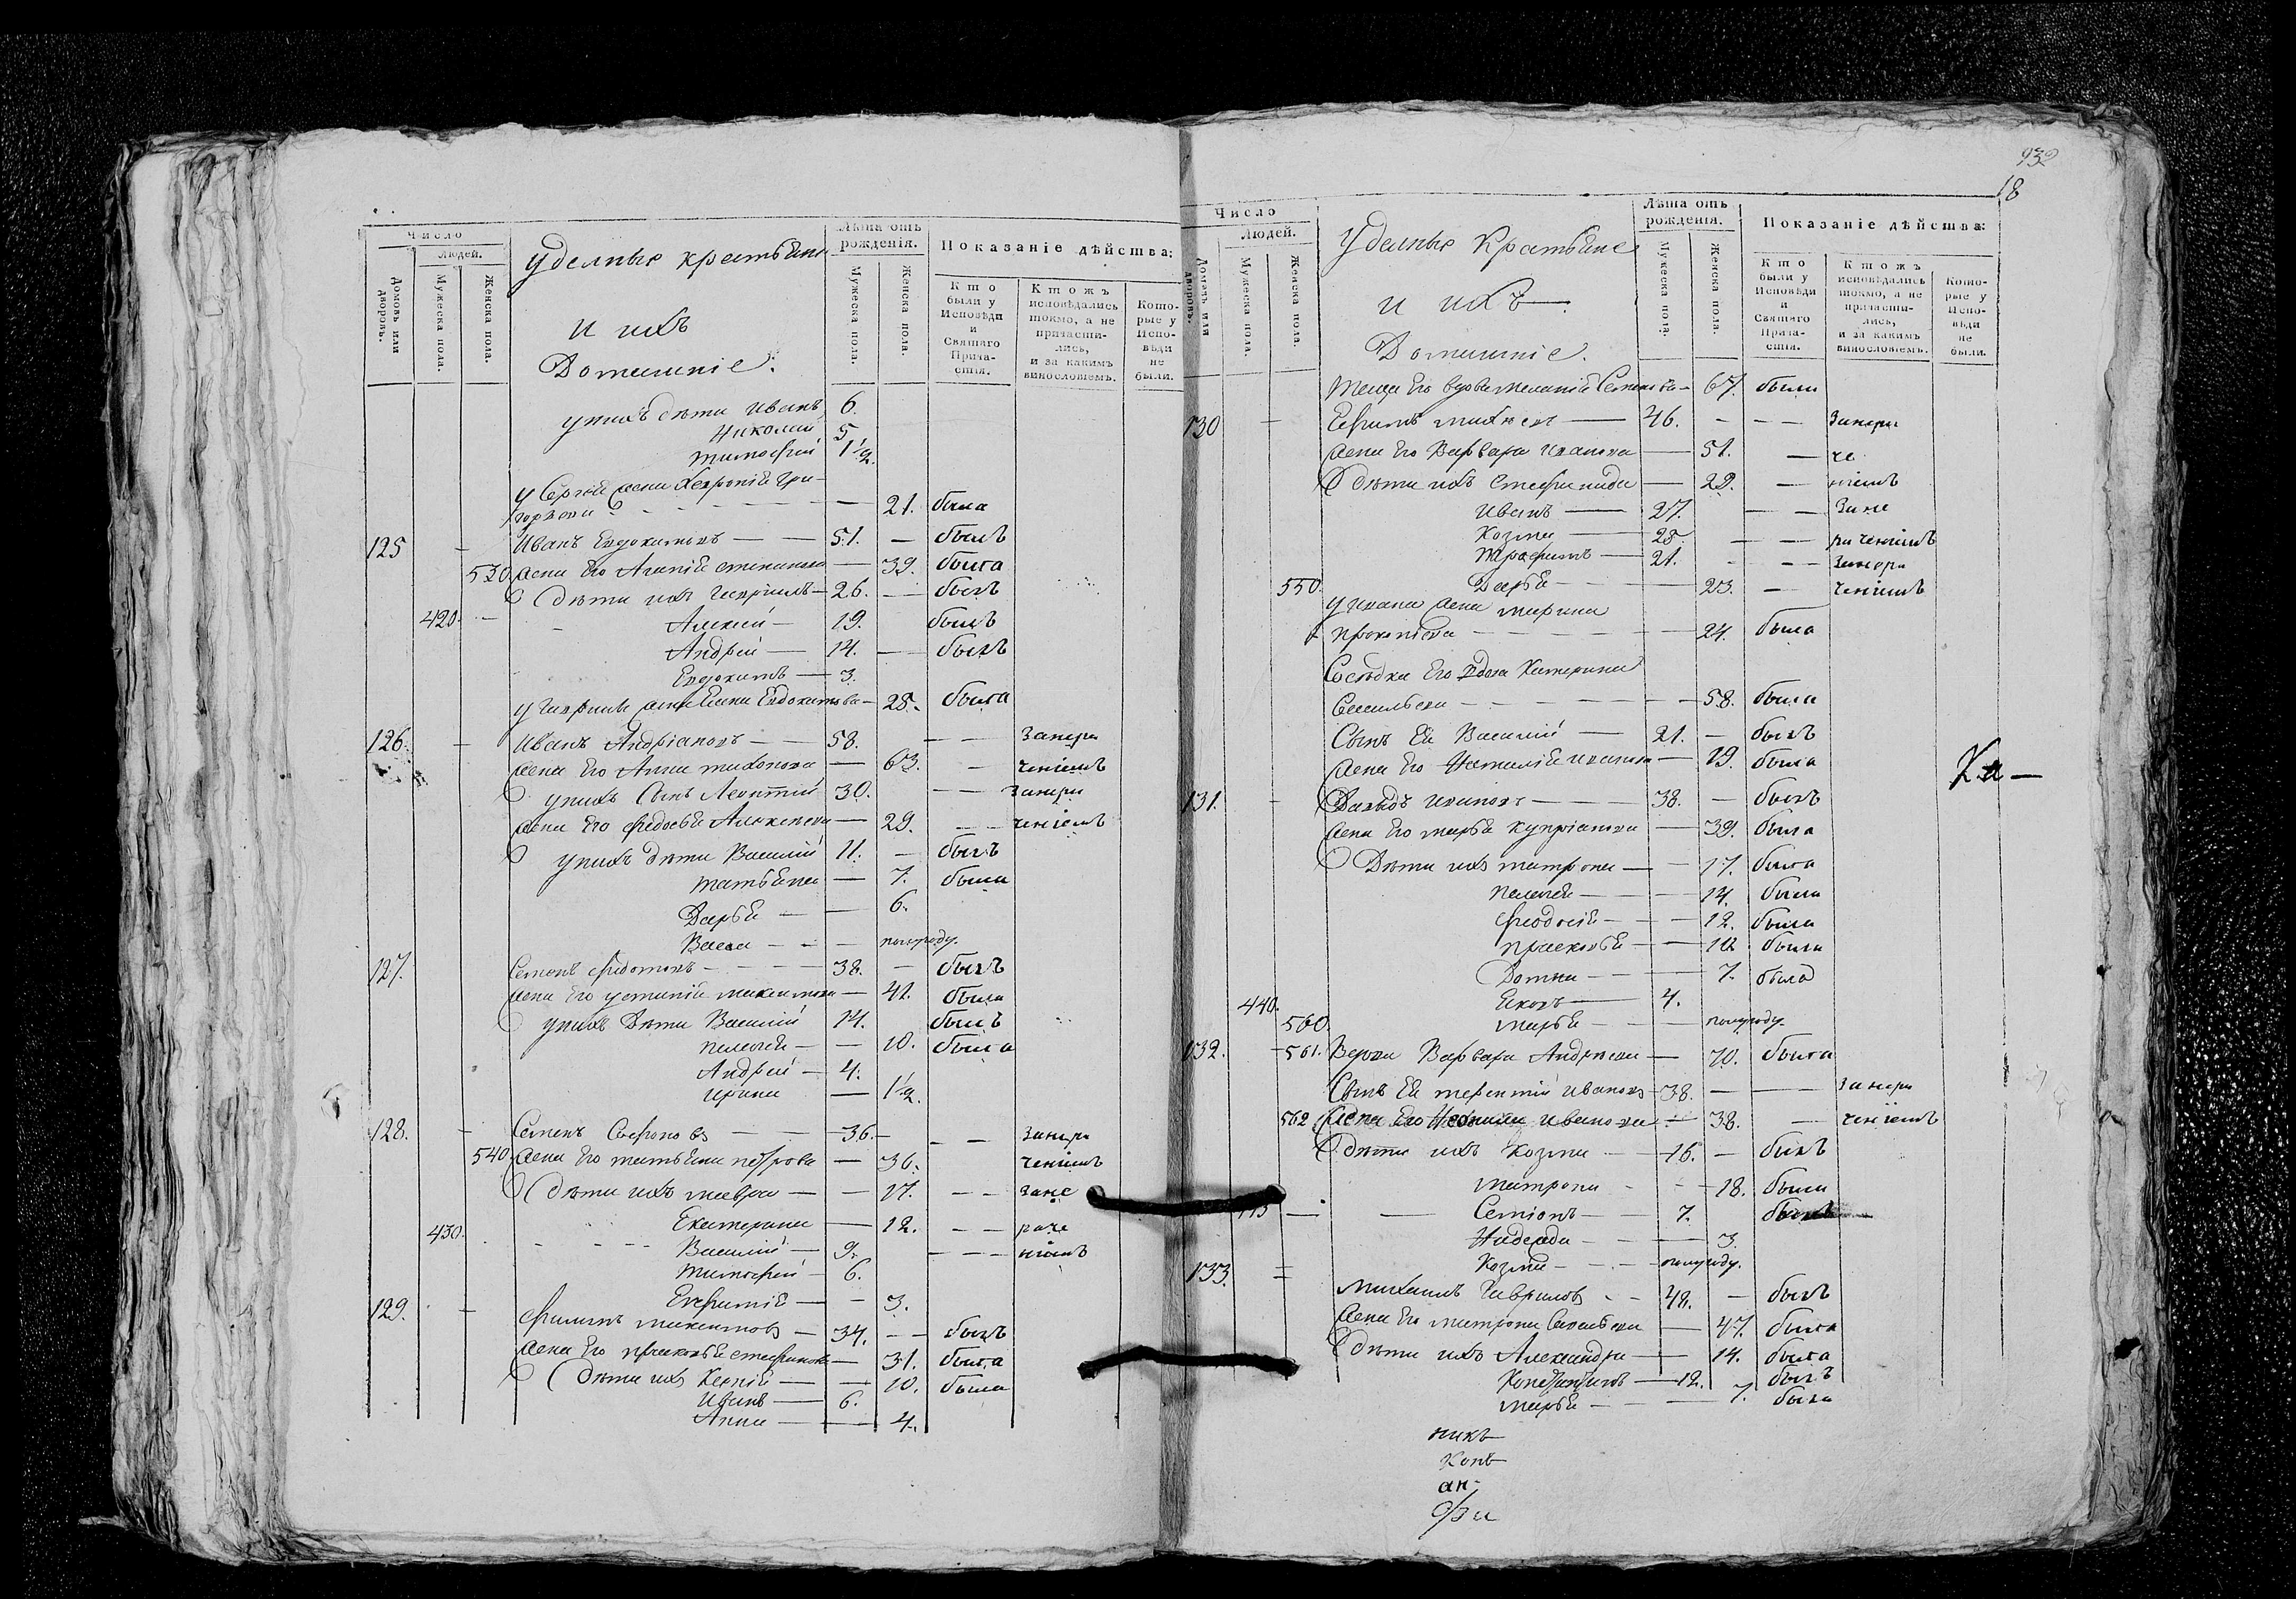 Число
Людей.
Домовъ или дворовъ.
Мужеска пола.
Женска пола.
Уделные крестьяне
и ихъ
Домашніе.
Лѣта отъ рожденія.
Мужеска пола.
Женска пола.
Показаніе дѣйства:
Кто были у Исповѣди и Святаго Прича-стія.
Ктожъ исповѣдались токмо, а не причасти-лись, и за какимъ винословіемъ.
Кото-рые у Испо-вѣди не были.
у нихъ дѣти Иванъ 6.
Николай 5
Тимофей 1 1/2.
у Сергея жена Хевронія Гри-
горьева 21. была
125 Иванъ Евдокимовъ 51. былъ
530 жена его Агапія 39. была
дѣти ихъ Гаврилъ 26. былъ
420. Алексей 19. былъ
Андрей 14. былъ
Евдокимъ 3.
у Гаврилы жена Евдокимова 28. была
126. Иванъ Андріановъ 58. занера
жена его Анна Тихонова 63. ченіемъ
у нихъ сынъ Леонтій 30. занера
жена его Федосья Алексеева 29. ченіемъ
у нихъ дѣти Василій 11. былъ
Татьяна 7. была
Дарья 6.
Васса полугоду.
127. Семенъ Федотовъ 38. былъ
жена его Устинія 41. была
у нихъ дѣти Василій 14. былъ
Пелагея 10. была
Андрей 4.
Ирина 1 1/2.
128. Семенъ Сафоновъ 36. занера
540 жена его Татьяна Петрова 36. ченіемъ
дѣти ихъ Мавра 17. зане
Екатерина 12. раче
430. Василій 9. ніемъ
Тимофей 6.
Евфимія 3.
129. Филипъ Никитовъ 34. былъ
жена его Прасковья Стефанова 31. была
дѣти ихъ Ксенія 10. была
Иванъ 6.
Анна 4.
932
18
Число
Людей.
Домовъ или дворовъ.
Мужеска пола.
Женска пола.
Уделные Крестьяне
и ихъ
Домашніе.
Лѣта отъ рожденія.
Мужеска пола.
Женска пола.
Показаніе дѣйства:
Кто были у Исповѣди и Святаго Прича-стія.
Ктожъ исповѣдались токмо, а не причасти-лись, и за какимъ винословіемъ.
Кото-рые у Испо-вѣди не были.
Теща его вдова Меланія Семенова 67. была
130 Ефимъ 46. занера
жена его Варвара Иванова 51. че
дѣти ихъ Стефанида 29. ніемъ
Иванъ 27. зане
Козма 25. раченіемъ
Трофимъ 21. занера
550. Дарья 23. ченіемъ
у Ивана жена Марина
Прокопіева 24. была
Сосѣдка его вдова Катерина
Васильева 58. была
Сынъ ея Василій 21. былъ
жена его Наталія Иванова 19. была
Ка—
131. Давыдъ Ивановъ 38. былъ
жена его Марья Купріанова 39. была
Дѣти ихъ Матрона 17. была
Пелагея 14. была
Феодосія 12. была
Прасковья 10 была
Домна 7. была
440. Яковъ 4.
560. Марья полугоду.
132. 561. Вдова Варвара Андреева 70. была
Сынъ ея Терентій Ивановъ 38. занера
562 жена его Иванова 38. ченіемъ
дѣти ихъ Козма 16. былъ
Матрона 18. была
Семіонъ 7. былъ
Надежда 3.
Козма полугоду.
133. Михаилъ Гавриловъ 48. былъ
жена его Матрона Савельева 47. была
дѣти ихъ Александра 14. была
Константинъ 12. былъ
Марья 7. была
никъ
Конъ
ан-